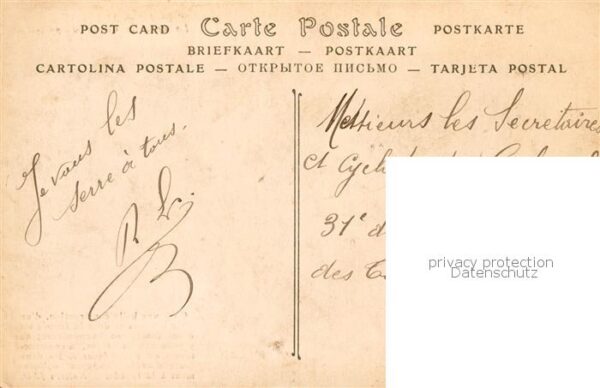 POST CARD Carte Postale POSTKARTE
BRIEFKAART — POSTKAART
CARTOLINA POSTALE — ОТКРЫТОЕ ПИСЬМО — TARJETA POSTAL
Je vous les
serre à tous.
R. L.
Messieurs les Secretaires
et
31e d
des
privacy protection
Datenschutz